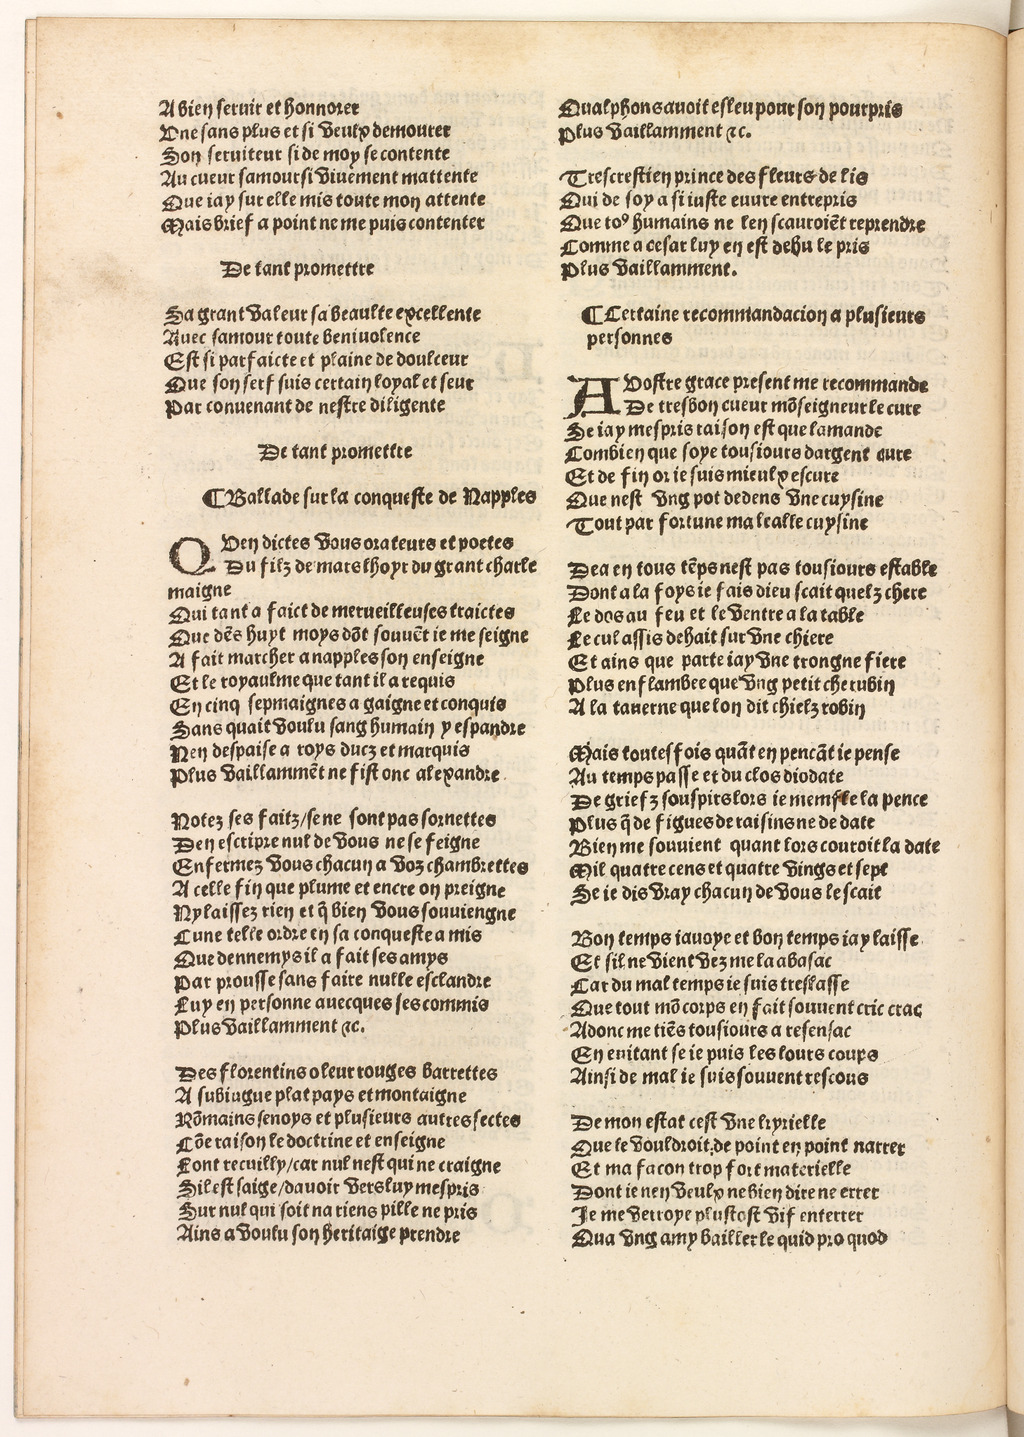 A bien seruir et honnorer
Vne sans plus et si veulx demourer
Son seruiteur si de moy se contente
Au cueur samour si viuement mattente
Que iay sur elle mis toute mon attente
Mais brief a point ne me puis contenter
De tant promettre
Sa grant valeur sa beaulte excellente
Auec samour toute beniuolence
Est si parfaicte et plaine de doulceur
Que son serf suis certain loyal et seur
Par conuenant de nestre diligente
De tant promettre
¶ Ballade sur la conqueste de Napples
QVen dictes vous orateurs et poetes
Du filz de mars lhoyr du grant charle
maigne
Qui tant a faict de merueilleuses traictes
Que dẽs huyt moys dõt souuẽt ie me seigne
A fait marcher a napples son enseigne
Et le royaulme que tant il a requis
En cinq sepmaignes a gaigne et conquis
Sans quait voulu sang humain y espandre
Nen despaise a roys ducz et marquis
Plus vaillammẽt ne fist onc alexandre
Notez ses faitz/se ne sont pas sornettes
Den escripre nul de vous ne se feigne
Enfermez vous chacun a voz chambrettes
A celle fin que plume et encre on preigne
Ny laissez rien et q̃ bien vous souuiengne
Cune telle ordre en sa conqueste a mis
Que dennemys il a fait ses amys
Par prousse sans faire nulle esclandre
Luy en personne auecques ses commis
Plus vaillamment ⁊c.
Des florentins o leur rouges barrettes
A subiugue plat pays et montaigne
Rõmains senoys et plusieurs autres sectes
Cõe raison le doctrine et enseigne
Lont recuilly/car nul nest qui ne craigne
Sil est saige/dauoir vers luy mespris
Sur nul qui soit na riens pille ne pris
Ains a voulu son heritaige prendre
Qualphons auoit esleu pour son pourpris
Plus vaillamment ⁊c.
Trescrestien prince des fleurs de lis
Qui de soy a si iuste euure entrepris
Que toꝰ humains ne len scauroiẽt reprendre
Comme a cesar luy en est dehu le pris
Plus vaillamment.
¶ Certaine recommandacion a plusieurs
personnes
AVostre grace present me recommande
De tresbon cueur mõseigneur le cure
Se iay mespris raison est que lamande
Combien que soye tousiours dargent cure
Et de fin or ie suis mieulx escure
Que nest vng pot dedens vne cuysine
Tout par fortune ma lealle cuysine
Dea en tous tẽps nest pas tousiours estable
Dont a la foys ie fais dieu scait quelz chere
Le dos au feu et le ventre a la table
Le cul assis dehait sur vne chiere
Et ains que parte iay vne trongne fiere
Plus enflambee que vng petit cherubin
A la tauerne que lon dit chielz robin
Mais toutesfois quãt en pencãt ie pense
Au temps passe et du clos diodate
De griefz souspirs lors ie memfle la pence
Plus q̃ de figues de raisins ne de date
Bien me souuient quant lors couroit la date
Mil quatre cens et quatre vings et sept
Se ie dis vray chacun de vous le scait
Bon temps iauoye et bon temps iay laisse
Et sil ne vient vez me la abasac
Car du mal temps ie suis treslasse
Que tout mõ corps en fait souuent cric crac
Adonc me tiẽs tousiours a resensac
En euitant se ie puis les lours coups
Ainsi de mal ie suis souuent rescous
De mon estat cest vne kyrielle
Que le vouldroit de point en point narrer
Et ma facon trop fort materielle
Dont ie nen veulx ne bien dire ne errer
Je me verroye plustost vif enterrer
Qua vng amy bailler le quid pro quod